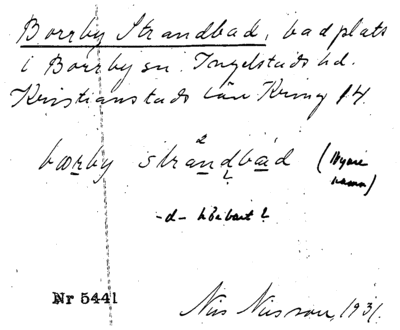 Borrby Strandbad, badplats
i Borrby sn. Ingelstads hd.
Kristianstads län Krong 14.
bœrby strandbad (Nyare
namn)
-d- hörbart?
Nr 5441
Nils Nilsson, 1931.